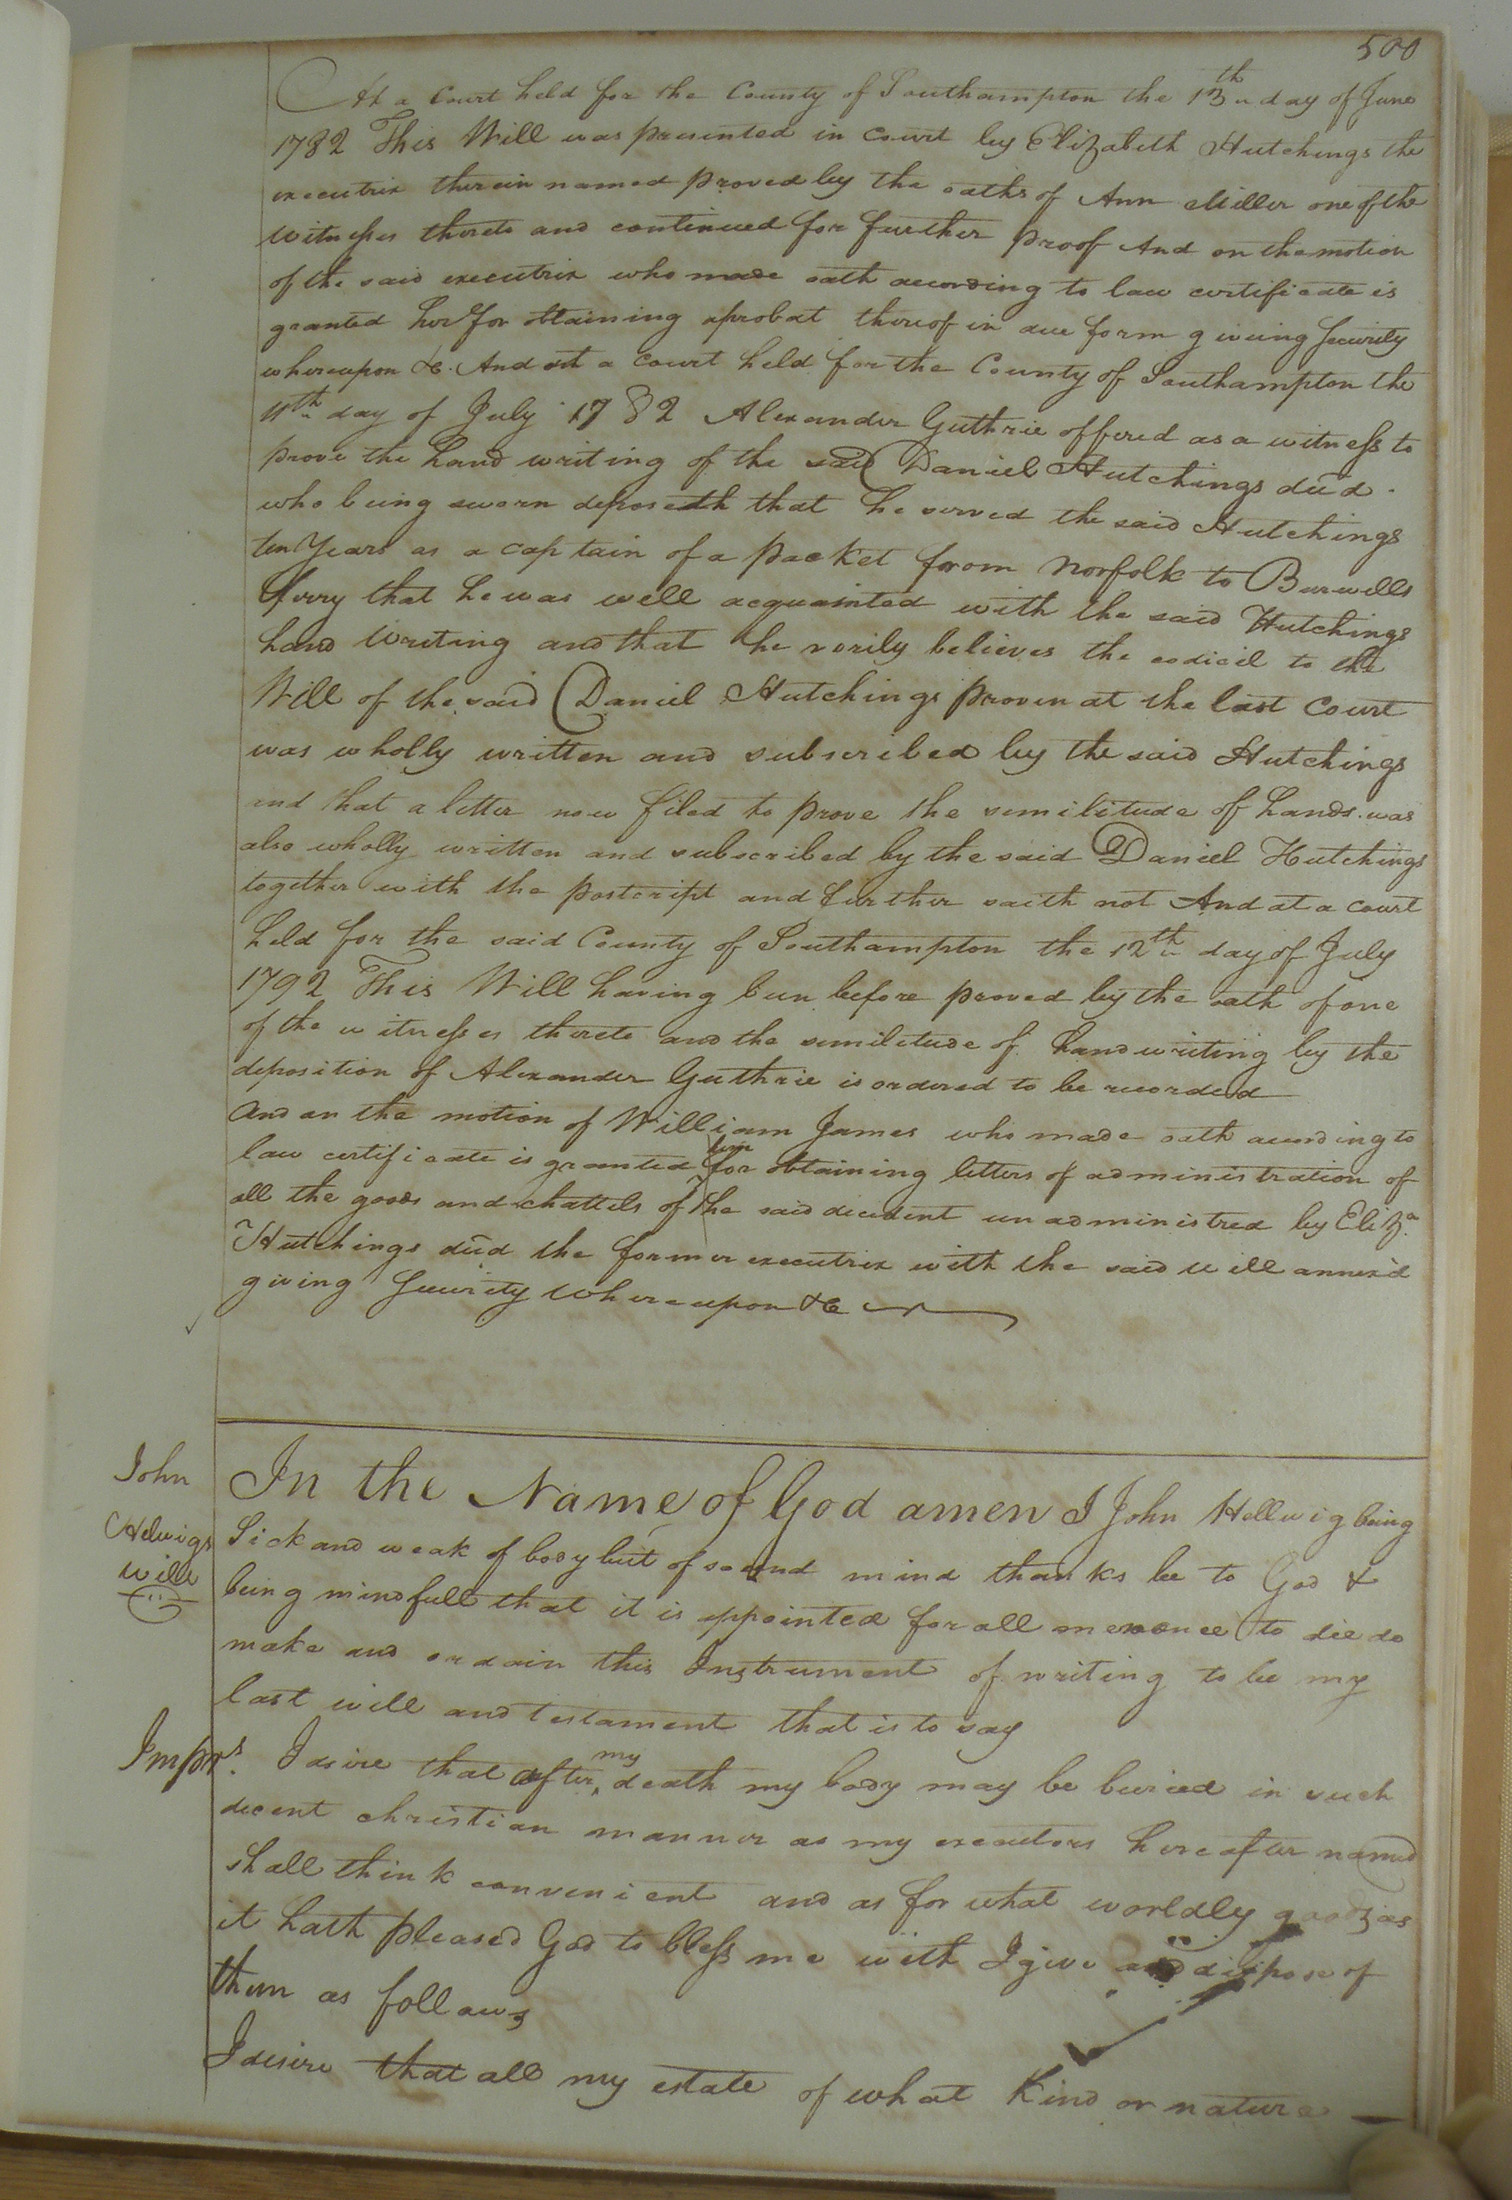 500
At a Court held for the County of Southampton the 13th day of June
1782 This Will was presented in court by Elizabeth Hutchings the
executrix therein named proved by the oaths of Ann Miller one of the
witnesses thereto and continued for further proof And on the motion
of the said executrix who made oath according to law certificate is
granted her for obtaining aprobat thereof in due form giveing Security
whereupon &c. And at a Court held for the County of Southampton the
11th day of July 1782 Alexander Guthrie offered as a witness to
prove the hand writing of the said Daniel Hutchings dec'd.
who being sworn deposeth that he served the said Hutchings
ten Years as a captain of a packet from Norfolk to Burwells
ferry that he was well acquainted with the said Hutchings
hand Writing and that he verily believes the codicil to the
Will of the said Daniel Hutchings proven at the last Court
was wholly written and subscribed by the said Hutchings
and that a letter now filed to prove the similitude of hands was
also wholly written and subscribed by the said Daniel Hutchings
together with the postcript and further saith not And at a court
held for the said County of Southampton the 12th day of July
1792 This Will having been before proved by the oath of one
of the witnesses thereto and the similitude of handwriting by the
deposition of Alexander Guthrie is ordered to be recorded
And on the motion of William James who made oath according to
law certificate is granted him for obtaining letters of administration of
all the goods and chattels of the said decedent unadministred by Eliza.
Hutchings dec'd the former executrix with the said will annex'd
giving Security Whereupon &c
John
Helwigs
Will
In the Name of God amen I John Hellwig being
Sick and weak of body but of sound mind thanks be to God &
being mindfull that it is appointed for all men once to die do
make and ordain this Instrument of writing to be my
last will and testament that is to say
Imprs. I desire that after my death my body may be buried in such
decent christian manner as my executors hereafter named
shall think convenient and as for what worldly goods as
it hath pleased God to bless me with I give and dispose of
them as follows
I desire that all my estate of what Kind or nature